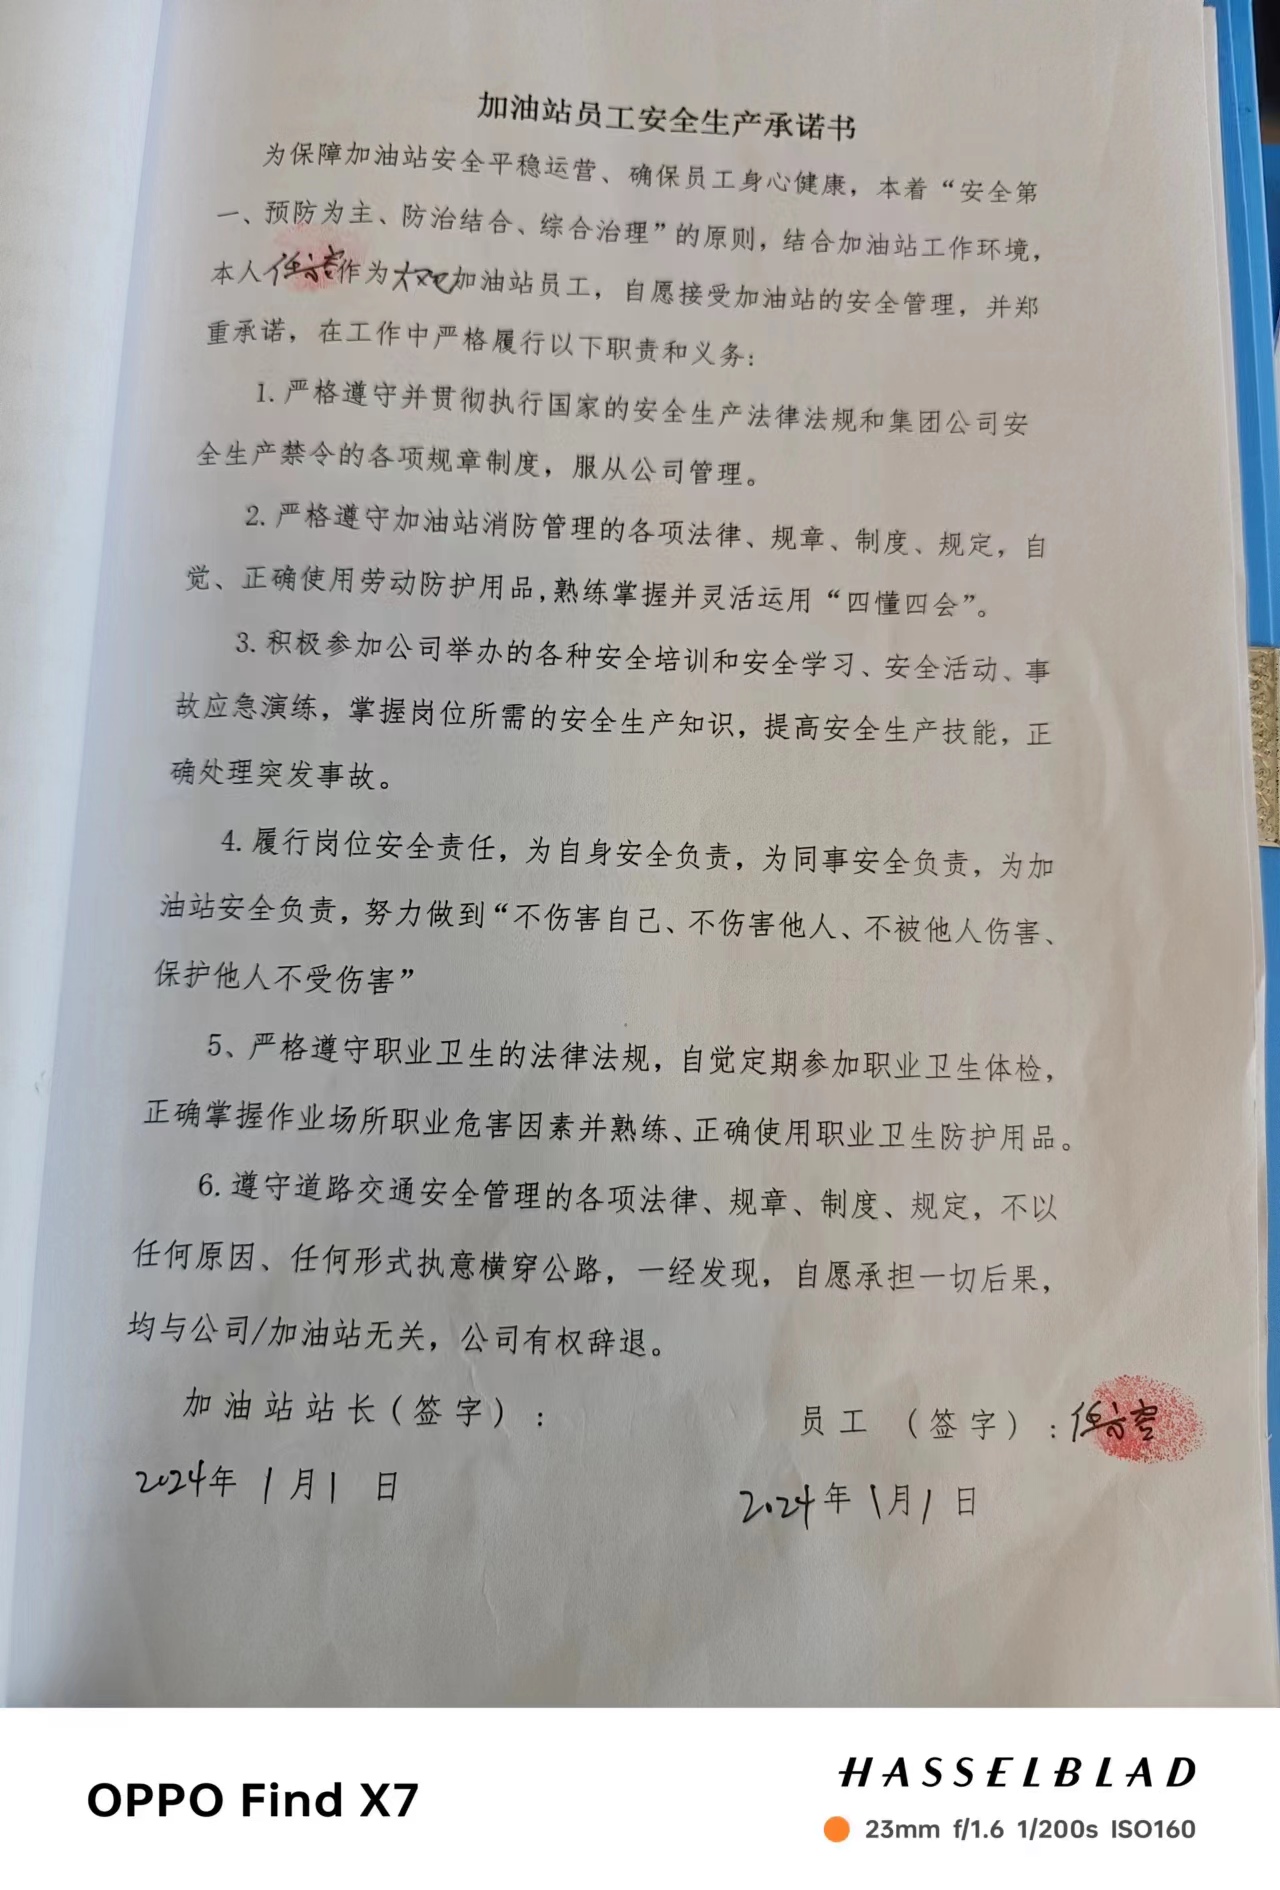 加油站员工安全生产承诺书
为保障加油站安全平稳运营、确保员工身心健康，本着“安全第
一、预防为主、防治结合、综合治理”的原则，结合加油站工作环境，
本人任作为加油站员工，自愿接受加油站的安全管理，并郑
重承诺，在工作中严格履行以下职责和义务：
1.严格遵守并贯彻执行国家的安全生产法律法规和集团公司安
全生产禁令的各项规章制度，服从公司管理。
2.严格遵守加油站消防管理的各项法律、规章、制度、规定，自
觉、正确使用劳动防护用品,熟练掌握并灵活运用“四懂四会”。
3.积极参加公司举办的各种安全培训和安全学习、安全活动、事
故应急演练，掌握岗位所需的安全生产知识，提高安全生产技能，正
确处理突发事故。
4.履行岗位安全责任，为自身安全负责，为同事安全负责，为加
油站安全负责，努力做到“不伤害自己、不伤害他人、不被他人伤害、
保护他人不受伤害”
5、严格遵守职业卫生的法律法规，自觉定期参加职业卫生体检，
正确掌握作业场所职业危害因素并熟练、正确使用职业卫生防护用品。
6.遵守道路交通安全管理的各项法律、规章、制度、规定，不以
任何原因、任何形式执意横穿公路，一经发现，自愿承担一切后果，
均与公司/加油站无关，公司有权辞退。
加油站站长（签字）：
员工（签字）：任
2024年1月1日
2024年1月1日
OPPO Find X7
HASSELBLAD
23mm f/1.6 1/200s ISO160